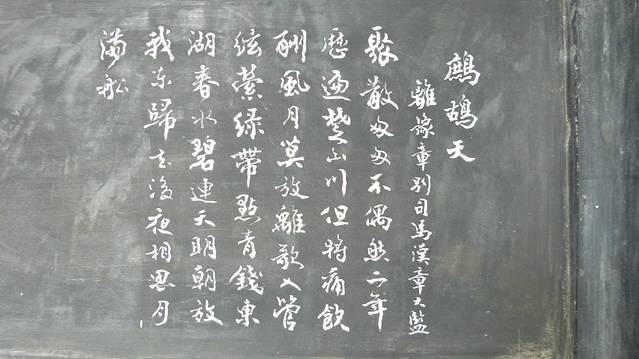 鷓鴣天
離豫章別司馬漢章大監
聚散匆匆不偶然二年
歷遍楚山川但將痛飲
酬風月莫放離歌入管
絃縈綠帶點青錢東
湖春水碧連天明朝放
我東歸去後夜相思月
滿船